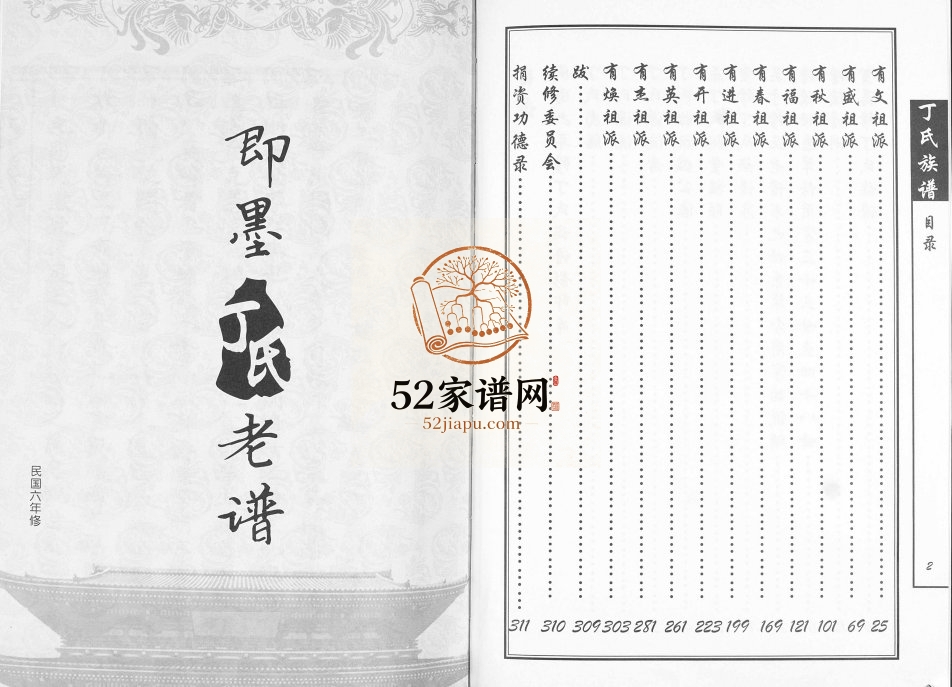 丁氏族谱
目录
2
有文祖派……25
有盛祖派……69
有秋祖派……101
有福祖派……121
有春祖派……169
有进祖派……199
有开祖派……223
有英祖派……261
有杰祖派……281
有焕祖派……303
跋……309
续修委员会……310
捐资功德录……311
即墨丁氏老谱
民国六年修
52家谱网
52jiapu.com